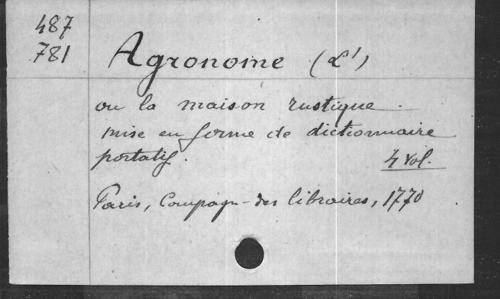 487
781
Agronome (L')
ou la maison rustique.
mise en forme de dictionnaire
portatif. 4 vol.
Paris, Compagn- des libraires, 1770